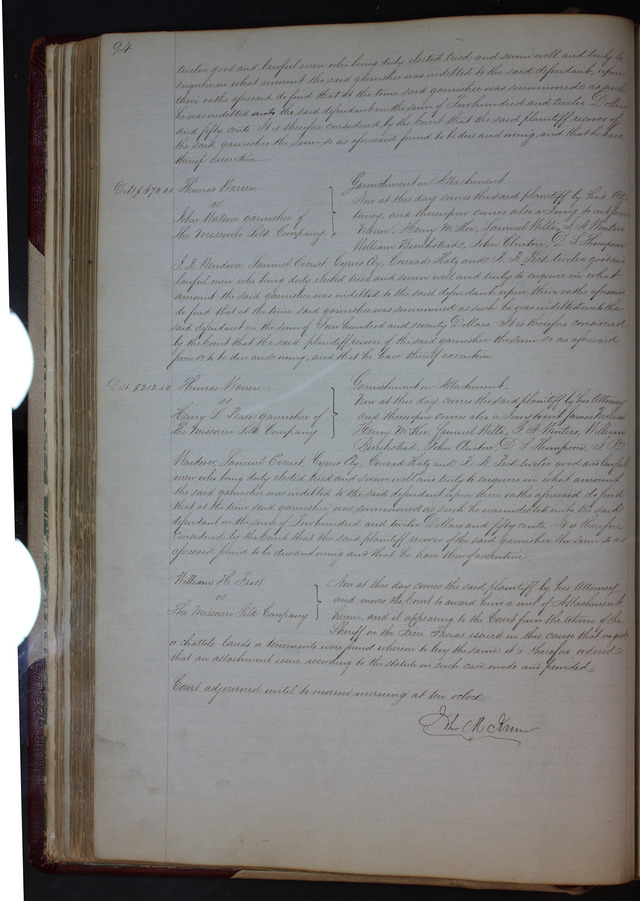 94
twelve good and lawful men who being duly elected tried and sworn well and truly to
enquire in what amount the said garnishee was indebted to the said defendant, upon
their oaths aforesaid do find that at the time said garnishee was summoned as such
he was indebted unto the said defendant in the sum of Two hundred and twelve Dollars
and fifty cents. It is therefore considered by the Court that the said plaintiff recover of
the said garnishee the sum so as aforesaid found to be due and owing, and that he have
thereof execution.
Debt $470.00 Thomas Warren
vs
John Watson garnishee of
The Missouri Silk Company
Garnishment on Attachment.
Now at this day comes the said plaintiff by his At
torney, and thereupon comes also a Jury to wit James
Henry McKee, Samuel Wells, J. A. Winters
William Burkstead, John Clinton, D. S. Thompson
J. R. Wendover, Samuel Conist, Cyrus Aly, Conrad Katz and F. R. Fest twelve good and
lawful men who being duly elected tried and sworn well and truly to enquire in what
amount the said garnishee was indebted to the said defendant, upon their oaths aforesaid
do find that at the time said garnishee was summoned as such he was indebted unto the
said defendant in the sum of Four hundred and seventy Dollars. It is therefore considered
by the Court that the said plaintiff recover of the said garnishee the sum so as aforesaid
found to be due and owing, and that he have thereof execution
Debt $212.50 Thomas Warren
vs
Henry L. garnishee of
The Missouri Silk Company
Garnishment on Attachment.
Now at this day comes the said plaintiff by his Attorney
and thereupon comes also a Jury to wit James
Henry McKee, Samuel Wells, J. A. Winters, William
Burkstead, John Clinton, D. S. Thompson, J. R.
Wendover, Samuel Conist, Cyrus Aly, Conrad Katz and F. R. Fest twelve good and lawful
men who being duly elected tried and sworn well and truly to enquire in what amount
the said garnishee was indebted to the said defendant upon their oaths aforesaid do find
that at the time said garnishee was summoned as such he was indebted unto the said
defendant in the sum of Two hundred and twelve Dollars and fifty cents. It is therefore
considered by the Court that the said plaintiff recover of the said garnishee the sum so as
aforesaid found to be due and owing and that he have thereof execution.
William H. Frost
vs
The Missouri Silk Company
Now at this day comes the said plaintiff by his Attorney
and moves the Court to award him a writ of Attachment
herein, and it appearing to the Court from the return of the
Sheriff on the Fieri Facias issued in this cause that no goods
or chattels lands or tenements were found whereon to levy the same it is therefore ordered
that an attachment issue according to the statute in such case made and provided.
Court adjourned until to morrow morning at ten oclock